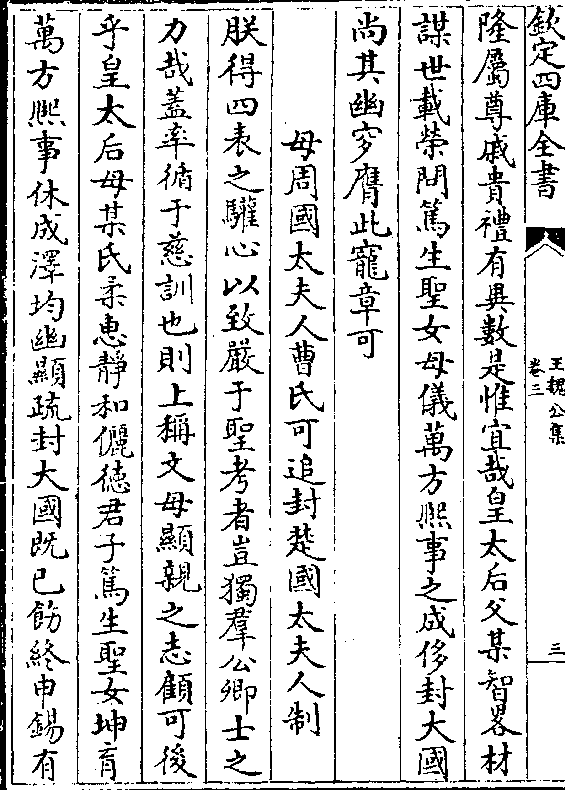 欽定四庫全書
王魏公集
卷三
三
隆屬尊戚貴禮有異數是惟宜哉皇太后父某智畧材
謀世載榮問篤生聖女母儀萬方熙事之成侈封大國
尚其幽穸膺此寵章可
母周國太夫人曹氏可追封楚國太夫人制
朕得四表之驩心以致嚴于聖考者豈獨羣公卿士之
力哉蓋率循于慈訓也則上稱文母顯親之志顧可後
乎皇太后母某氏柔惠靜和儷德君子篤生聖女坤育
萬方熙事休成澤均幽顯疏封大國既已飭終申錫有